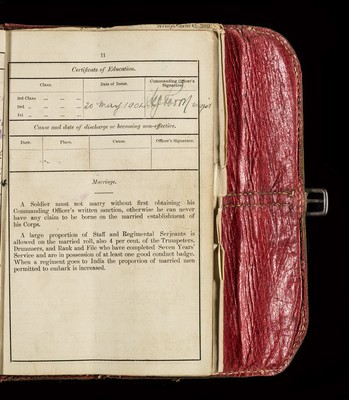 11
Certificate of Education.
Class. Date of Issue. Commanding Officer's Signature.
3rd Class
2nd " 20 May 1902 Major
1st "
Cause and date of discharge or becoming non-effective.
Date. Place. Cause. Officer's Signature.
Marriage.
A Soldier must not marry without first obtaining his
Commanding Officer's written sanction, otherwise he can never
have any claim to be borne on the married establishment of
his Corps.
A large proportion of Staff and Regimental Serjeants is
allowed on the married roll, also 4 per cent. of the Trumpeters,
Drummers, and Rank and File who have completed Seven Years'
Service and are in possession of at least one good conduct badge.
When a regiment goes to India the proportion of married men
permitted to embark is increased.